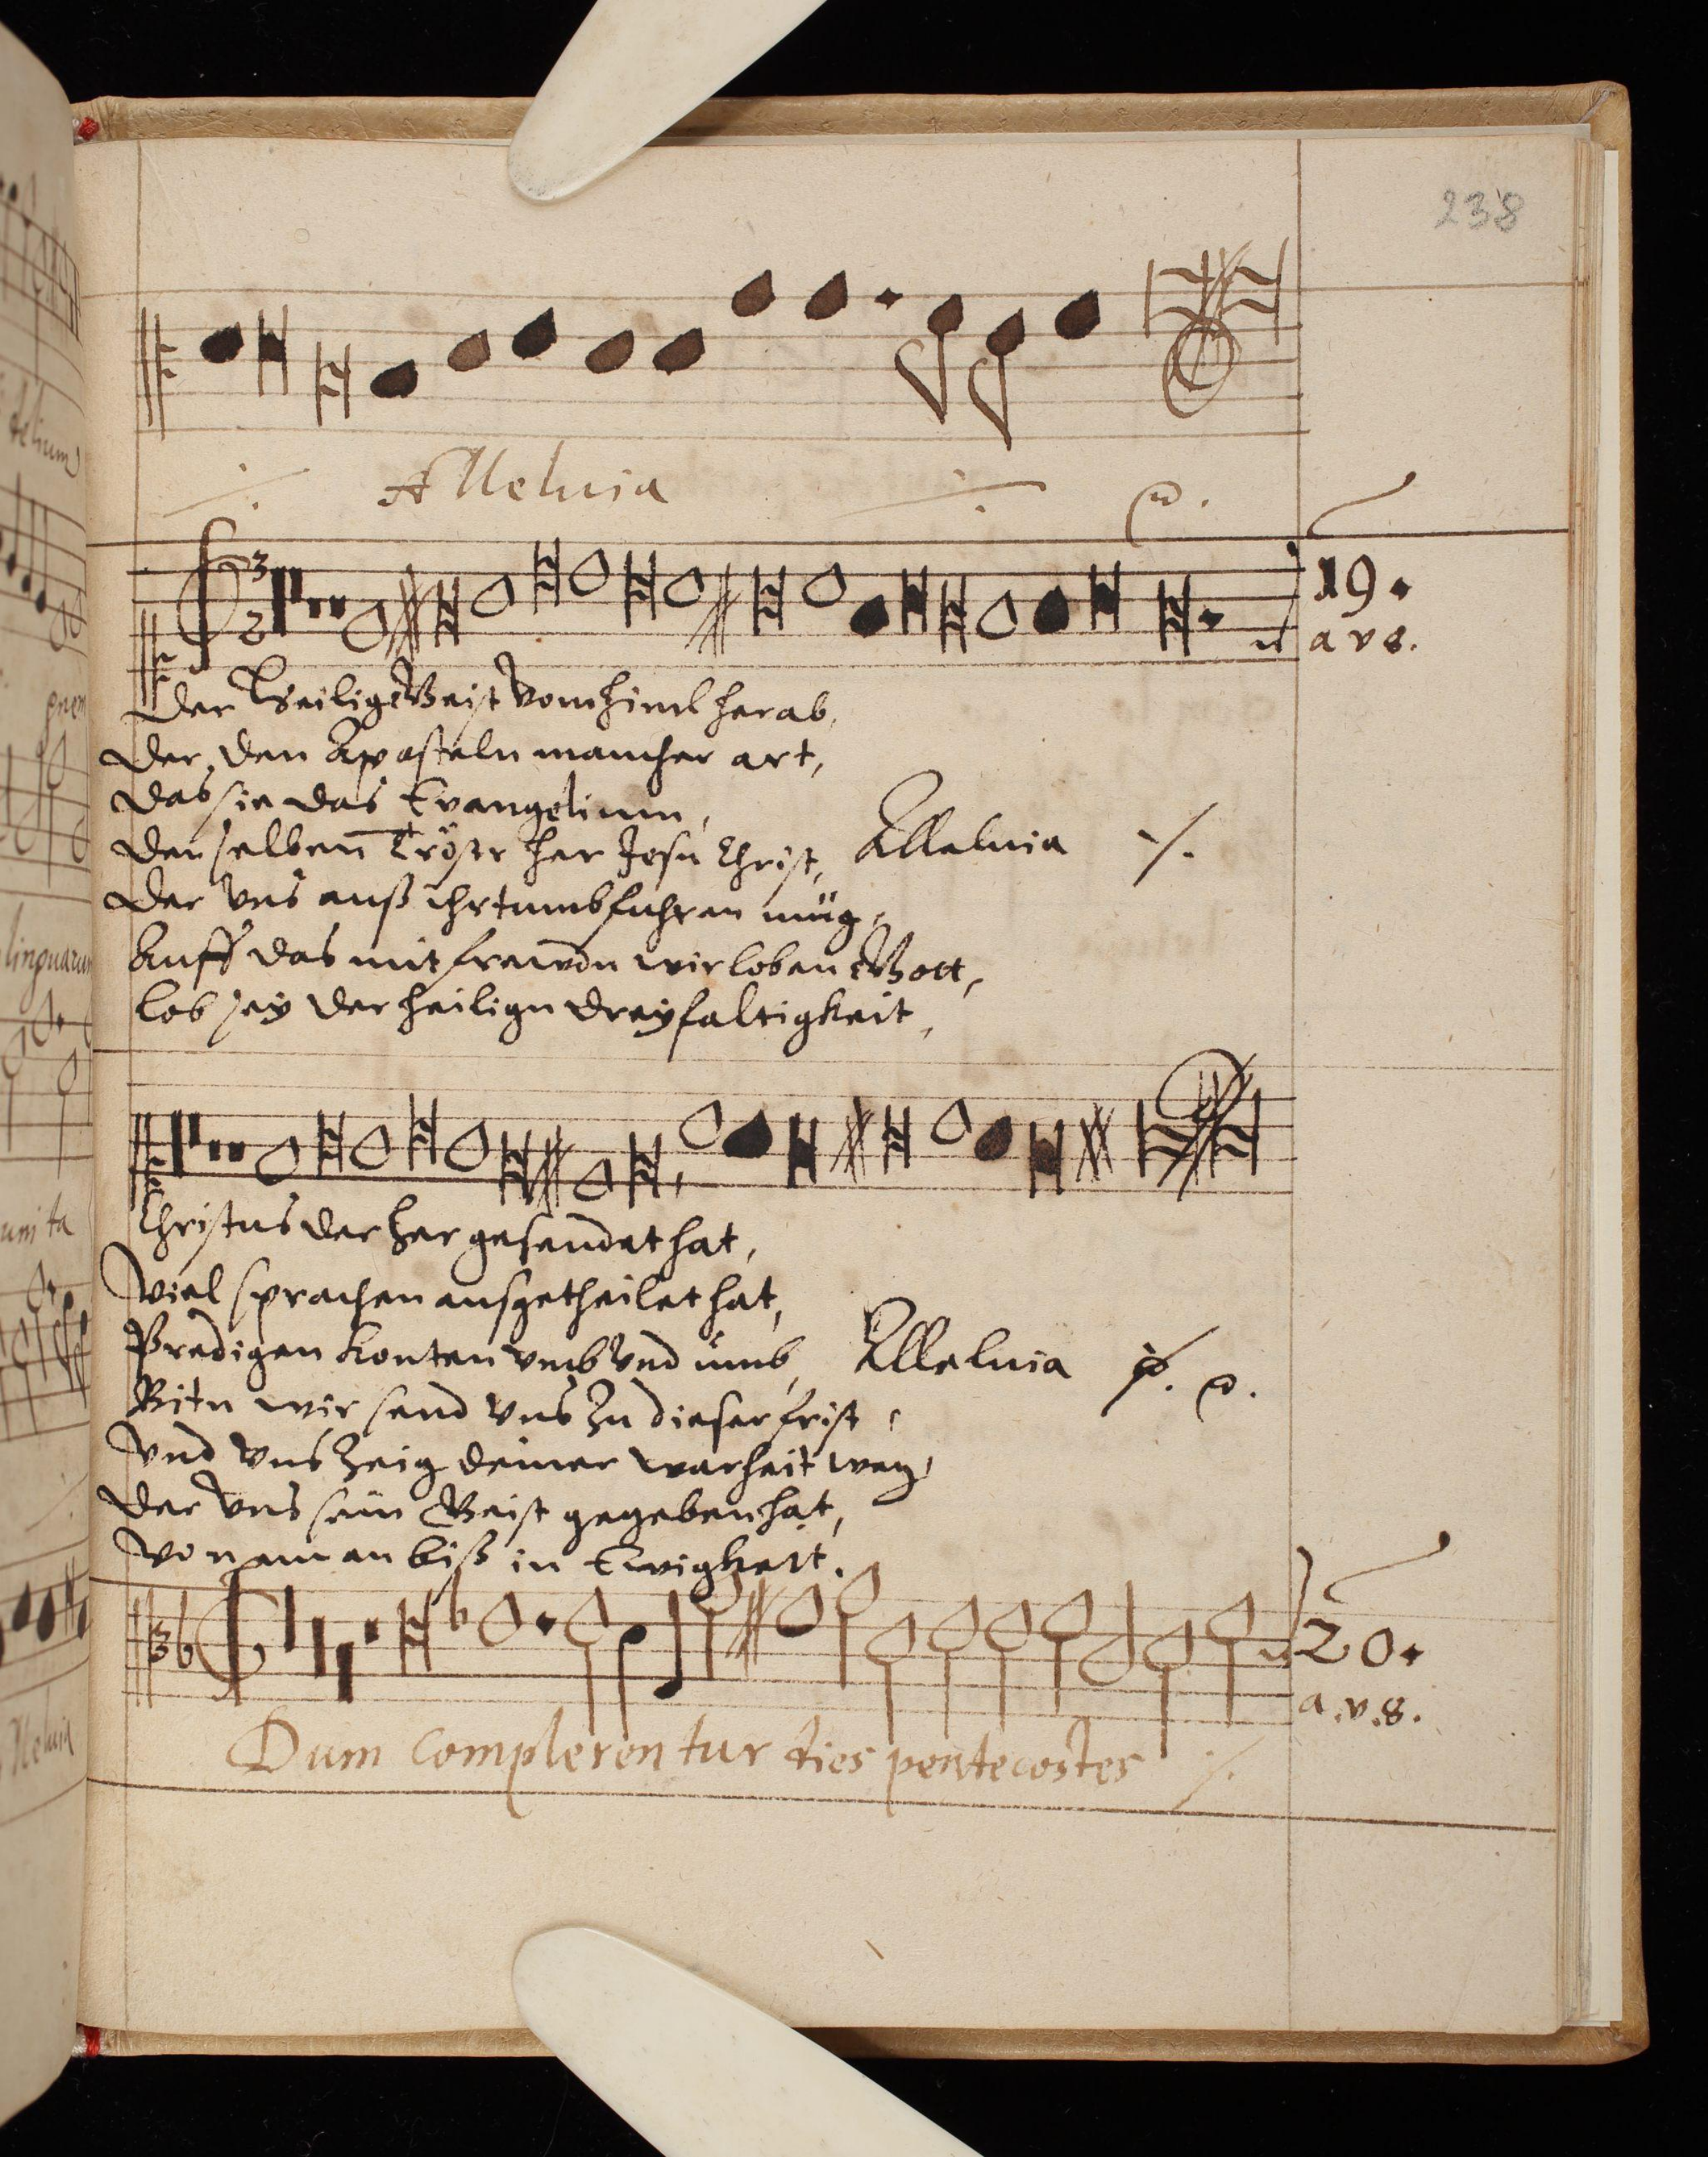 238
Alleluia
19.
a v 8.
Der Heilige Geist vom himl herab,
Der den Aposteln mancher art,
Das sie das Evangelium,
Denselben Tröstr her Jesu Christ, Alleluia
Der vns auß ihrtumb fuhren müg,
Auff das mit frewdn wir loben Gott,
lob sey der heilign dreyfaltigkeit,
Christus der her gesendet hat,
Viel sprachen ausgetheilet hat,
Predigen konten vmb vnd ümb, Alleluia
Bitn wir send vns zu dieser frist,
vnd vns zeig deiner warheit weg,
Der vns sein Geist gegeben hat,
Von nun an biß in Ewigkeit.
20.
a.v.8.
Dum complerentur dies pentecostes